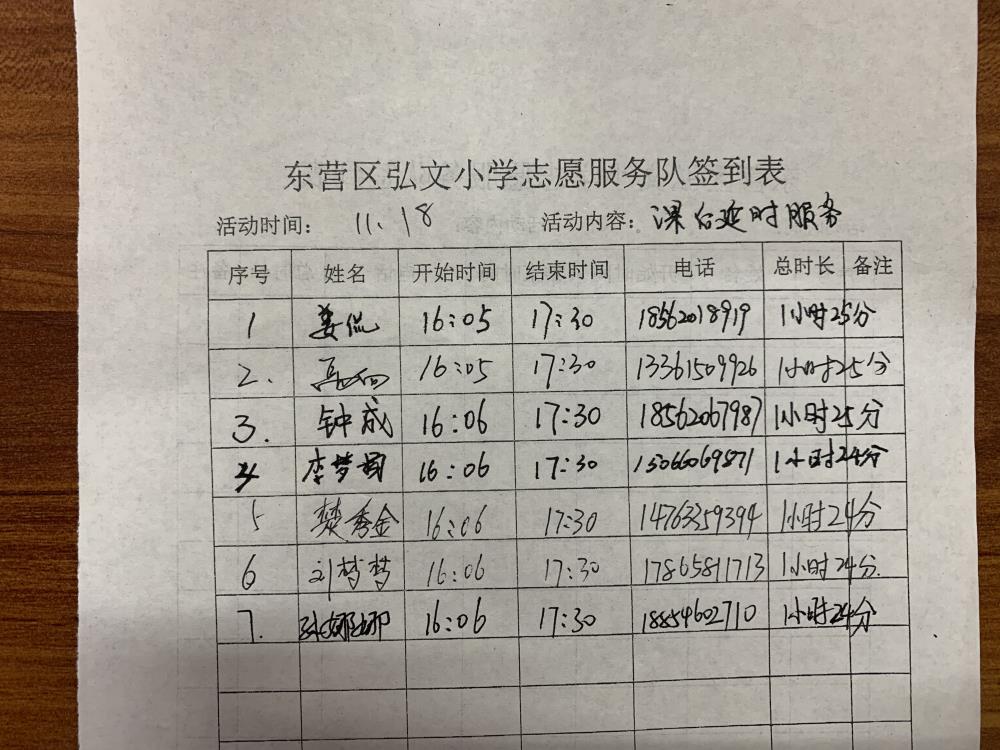 东营区弘文小学志愿服务队签到表
活动时间： 11.18 活动内容：课后延时服务
序号 姓名 开始时间 结束时间 电话 总时长 备注
1 姜侃 16:05 17:30 18562018919 1小时25分
2. 16:05 17:30 13361509926 1小时25分
3. 钟成 16:06 17:30 18562067987 1小时25分
4 李梦圆 16:06 17:30 15066069871 1小时24分
5 楚秀金 16:06 17:30 14763259394 1小时24分
6 刘梦梦 16:06 17:30 17865811713 1小时24分.
7. 孙娜娜 16:06 17:30 18854602710 1小时24分